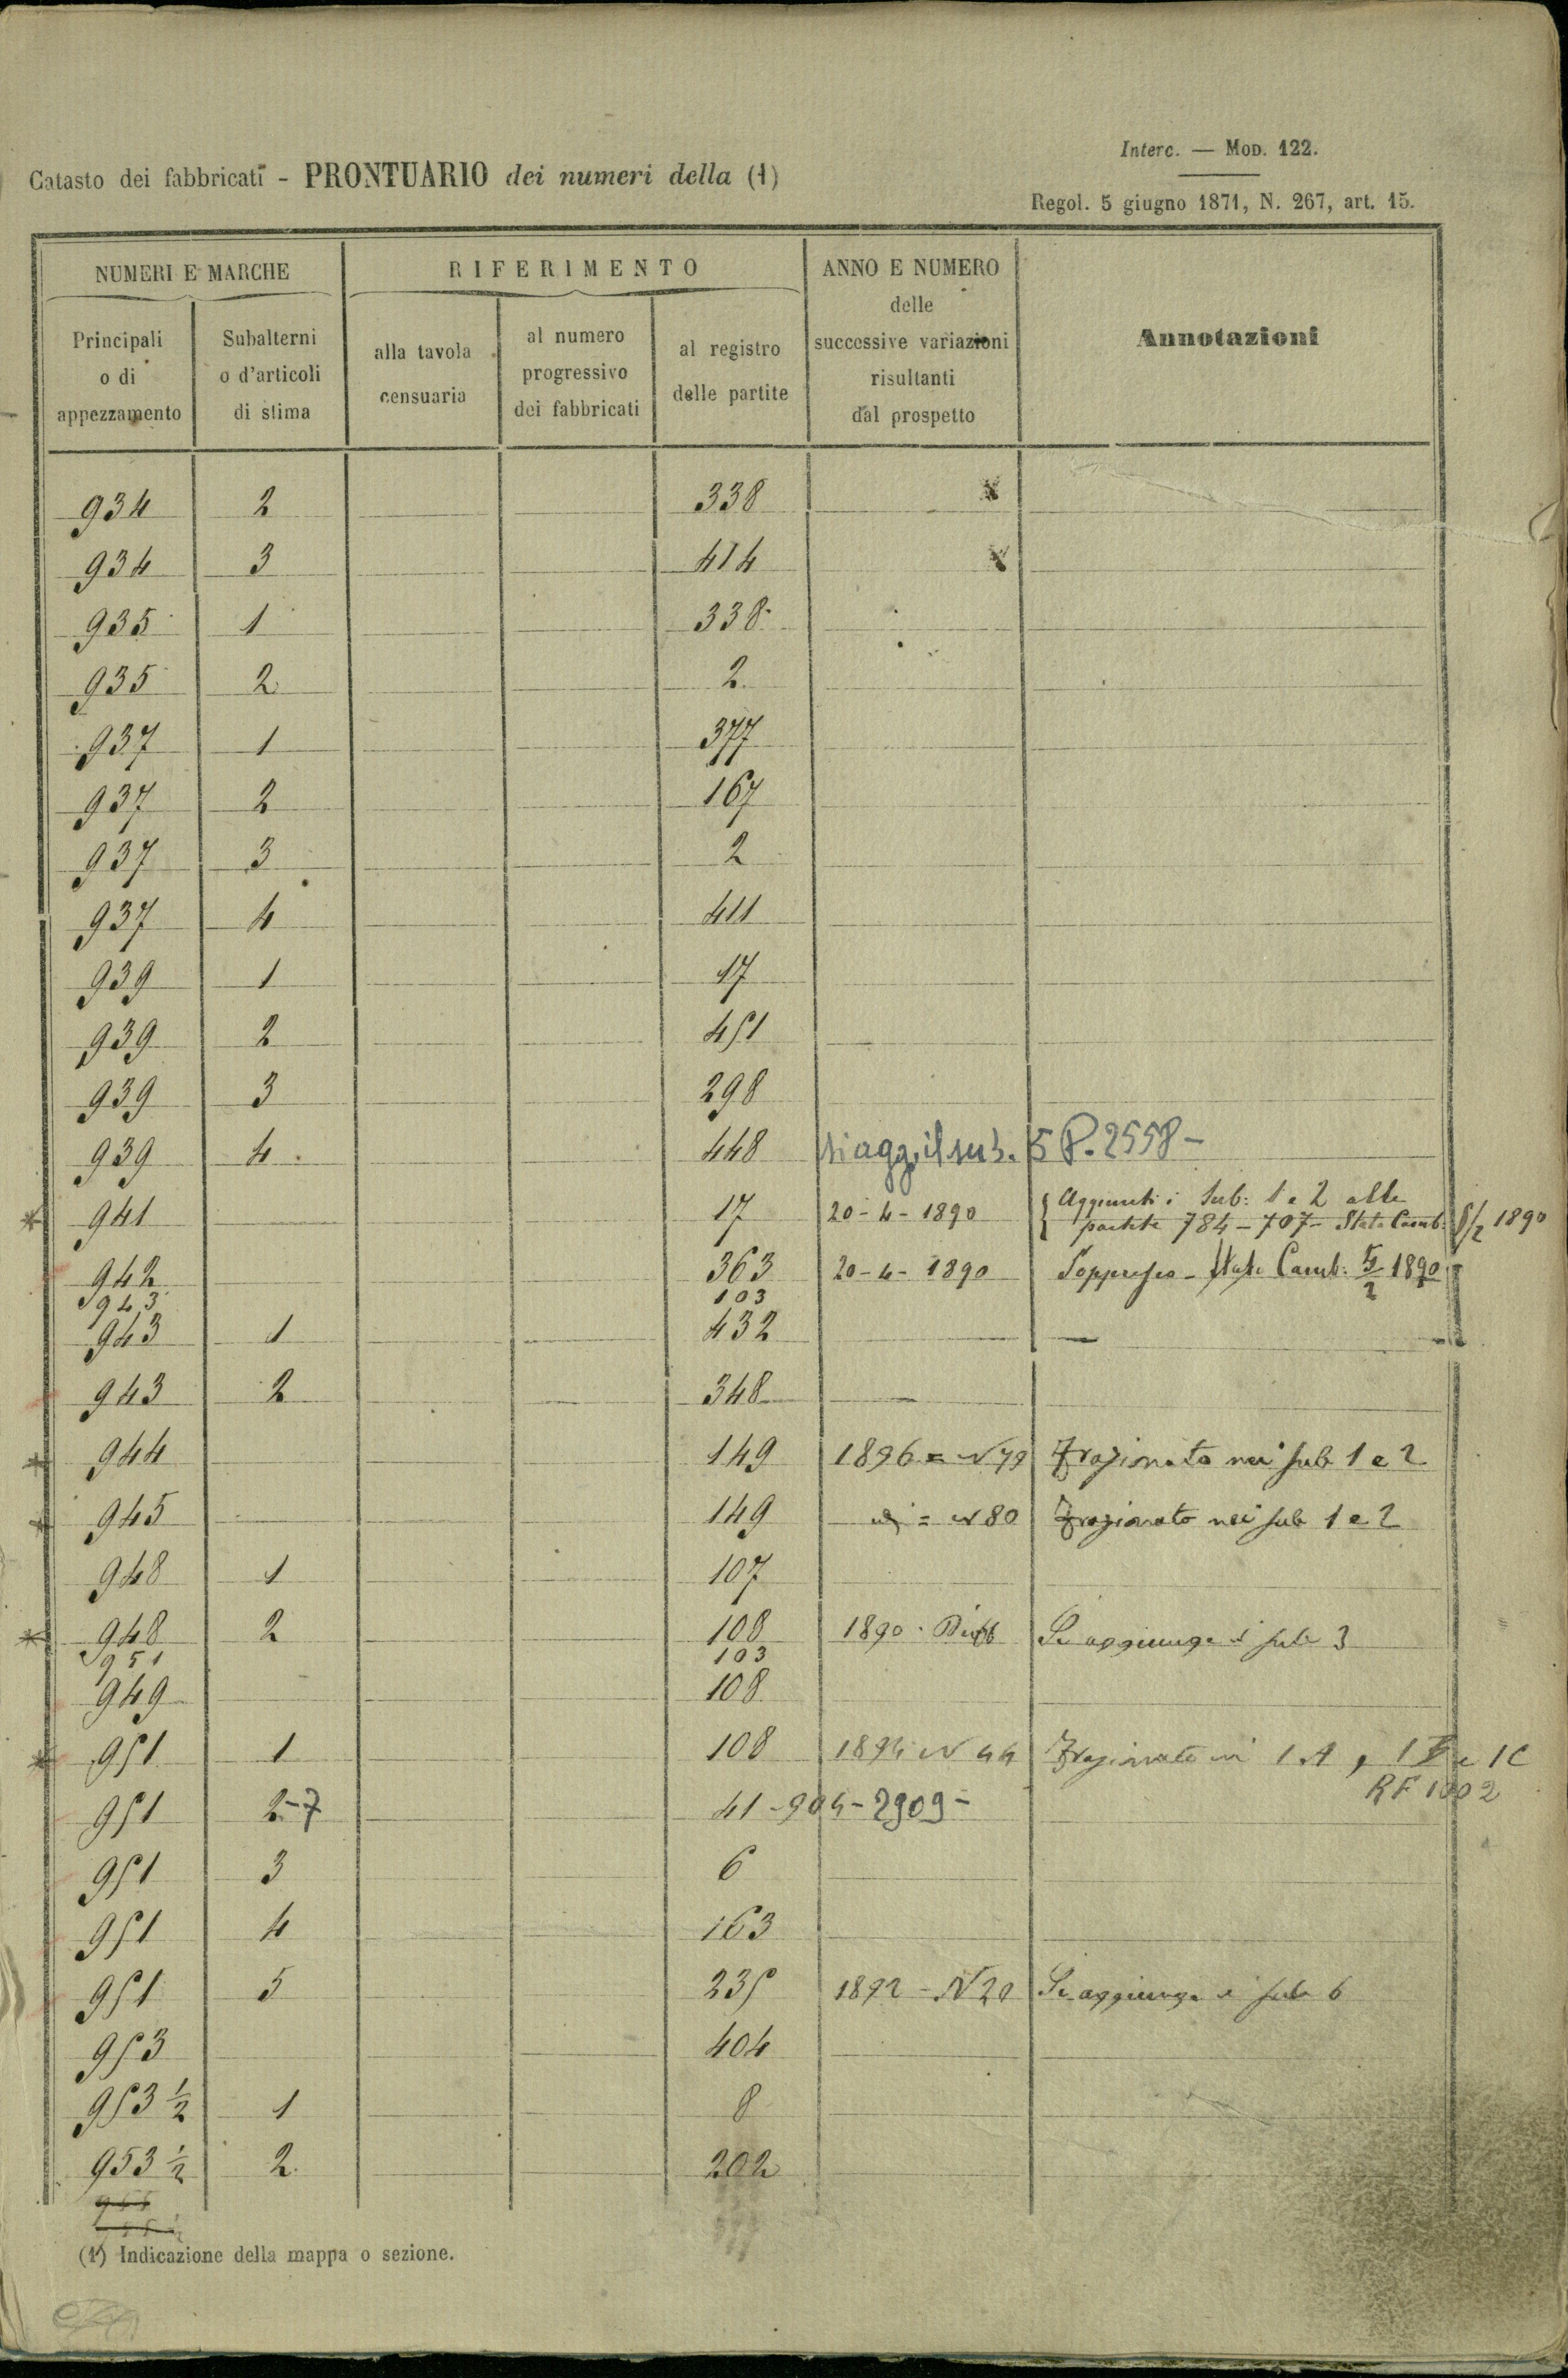 Interc. — Mod. 122.
Catasto dei fabbricati - PRONTUARIO dei numeri della (1)
Regol. 5 giugno 1871, N. 267, art. 15.
NUMERI E MARCHE
RIFERIMENTO
ANNO E NUMERO
delle
successive variazioni
risultanti
dal prospetto
Annotazioni
Principali
o di
appezzamento
Subalterni
o d'articoli
di stima
alla tavola
censuaria
al numero
progressivo
dei fabbricati
al registro
delle partite
934 2 338
934 3 414
935 1 338
935 2 2
937 1 377
937 2 167
937 3 2
937 4 411
939 1 17
939 2 451
939 3 298
939 4 448 si agg. il sub. 5 P. 2558 -
941 17 20-4-1890 Aggiunti i Sub: 1 e 2 alle
partite 784 - 707 - Stato Camb: 5/2 1890
942 363 20-4-1890 Soppresso - Stato Camb: 5/2 1890
943 103
943 1 432
943 2 348
944 149 1896 = N 79 Frazionato nei sub 1 e 2
945 149 id = N 80 Frazionato nei sub 1 e 2
948 1 107
948 2 108 1890 Si aggiunge il sub 3
951 103
949 108
951 1 108 1894 N 44 Frazionato in 1A, 1B e 1C
RF 1002
951 2-7 41-904-2909-
951 3 6
951 4 163
951 5 235 1892 - N 20 Si aggiunge il sub 6
953 404
953 1/2 1 8
953 1/2 2 202
(1) Indicazione della mappa o sezione.